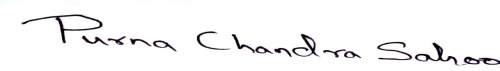 Purna Chandra Sahoo